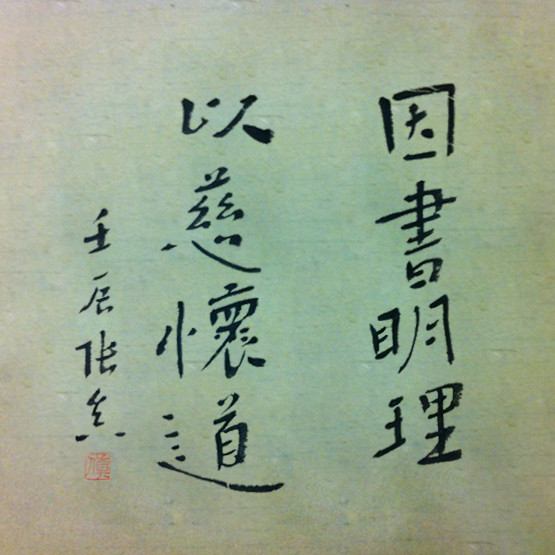 因書明理
以慈懷道
壬辰張真